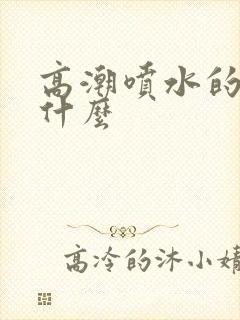 高潮噴水的
什麼
高冷的沐小婧